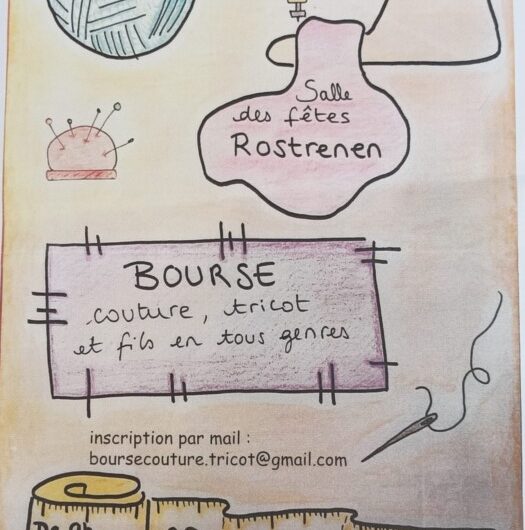 Salle
des fêtes
Rostrenen
BOURSE
couture, tricot
et fils en tous genres
inscription par mail :
boursecouture.tricot@gmail.com
De 9h